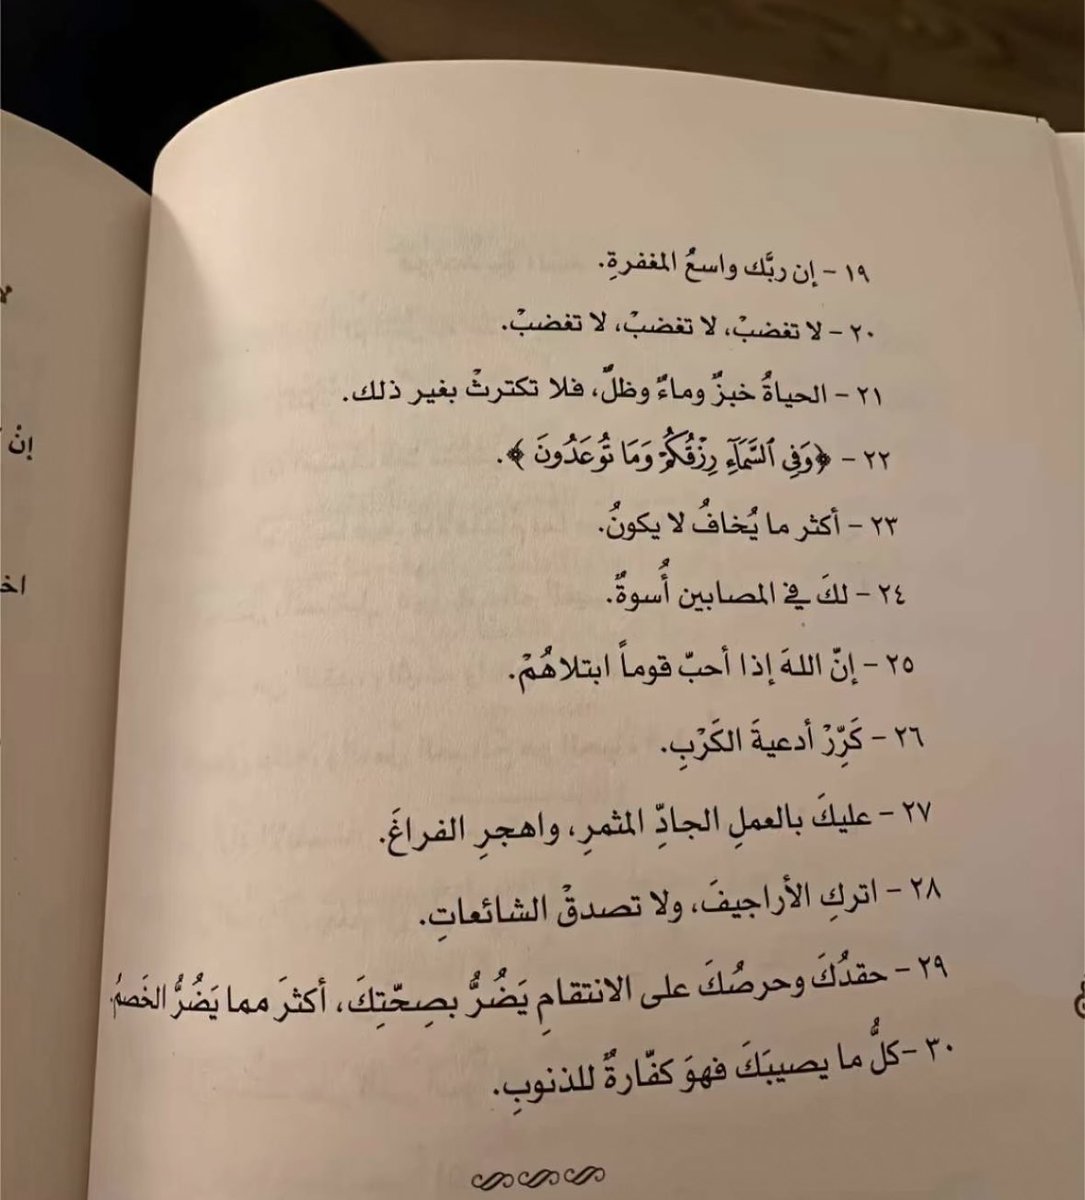 ١٩ - إن ربَّك واسعُ المغفرةِ.
٢٠ - لا تغضبْ، لا تغضبْ، لا تغضبْ.
٢١ - الحياةُ خبزٌ وماءٌ وظلٌّ، فلا تكترثْ بغير ذلك.
٢٢ - ﴿وَفِي ٱلسَّمَآءِ رِزْقُكُمْ وَمَا تُوعَدُونَ﴾.
٢٣ - أكثر ما يُخافُ لا يكونُ.
٢٤ - لكَ في المصابين أُسوةٌ.
٢٥ - إنّ اللهَ إذا أحبّ قوماً ابتلاهُمْ.
٢٦ - كَرِّرْ أدعيةَ الكَرْبِ.
٢٧ - عليكَ بالعملِ الجادِّ المثمرِ، واهجرِ الفراغَ.
٢٨ - اتركِ الأراجيفَ، ولا تصدقْ الشائعاتِ.
٢٩ - حقدُكَ وحرصُكَ على الانتقامِ يَضُرُّ بصِحّتِكَ، أكثرَ مما يَضُرُّ الخَصمُ.
٣٠ -كلُّ ما يصيبَكَ فهوَ كفّارةٌ للذنوبِ.
إنْ